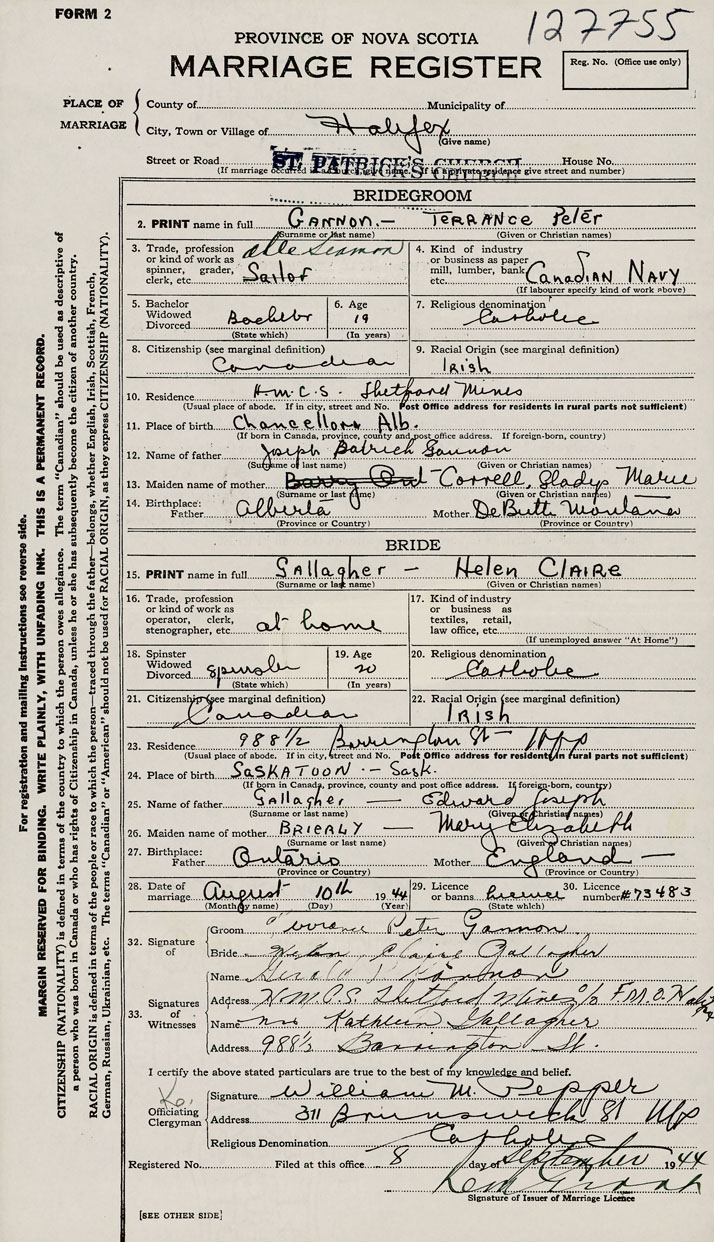 FORM 2
127755
PROVINCE OF NOVA SCOTIA
MARRIAGE REGISTER
Reg. No. (Office use only)
PLACE OF MARRIAGE
County of Municipality of
City, Town or Village of Halifax
(Give name)
Street or Road ST. PATRICK'S CHURCH House No.
(If marriage occurred in a church, give name. If in a private residence give street and number)
BRIDEGROOM
2. PRINT name in full GANNON - TERRANCE Peter
(Surname or last name) (Given or Christian names)
3. Trade, profession or kind of work as spinner, grader, clerk, etc. able Seaman Sailor
4. Kind of industry or business as paper mill, lumber, bank etc. CANADIAN NAVY
(If labourer specify kind of work above)
5. Bachelor Widowed Divorced Bachelor
(State which)
6. Age 19
(In years)
7. Religious denomination Catholic
8. Citizenship (see marginal definition) Canadian
9. Racial Origin (see marginal definition) IRISH
10. Residence H.M.C.S. Thetford Mines
(Usual place of abode. If in city, street and No. Post Office address for residents in rural parts not sufficient)
11. Place of birth Chancellor Alb.
(If born in Canada, province, county and post office address. If foreign-born, country)
12. Name of father Joseph Patrick Gannon
(Surname or last name) (Given or Christian names)
13. Maiden name of mother Correll, Gladys Marie
(Surname or last name) (Given or Christian names)
14. Birthplace: Father Alberta Mother De Butt Montana
(Province or Country) (Province or Country)
BRIDE
15. PRINT name in full Gallagher - Helen CLAIRE
(Surname or last name) (Given or Christian names)
16. Trade, profession or kind of work as operator, clerk, stenographer, etc. at home
17. Kind of industry or business as textiles, retail, law office, etc.
(If unemployed answer "At Home")
18. Spinster Widowed Divorced Spinster
(State which)
19. Age 20
(In years)
20. Religious denomination Catholic
21. Citizenship (see marginal definition) Canadian
22. Racial Origin (see marginal definition) IRISH
23. Residence 988 1/2 Barrington St - Hfx
(Usual place of abode. If in city, street and No. Post Office address for residents in rural parts not sufficient)
24. Place of birth SASKATOON - Sask.
(If born in Canada, province, county and post office address. If foreign-born, country)
25. Name of father Gallagher - Edward Joseph
(Surname or last name) (Given or Christian names)
26. Maiden name of mother BRIERLY - Mary Elizabeth
(Surname or last name) (Given or Christian names)
27. Birthplace: Father Ontario Mother England -
(Province or Country) (Province or Country)
28. Date of marriage August 10th 1944
(Month by name) (Day) (Year)
29. Licence or banns license
(State which)
30. Licence number #73483
32. Signature of
Groom Terrance Peter Gannon
Bride Helen Claire Gallagher
33. Signatures of Witnesses
Name Gerald Gannon
Address H.M.C.S. Thetford Mines c/o F.M.O. Halifax
Name Mrs Kathleen Gallagher
Address 988 1/2 Barrington St.
I certify the above stated particulars are true to the best of my knowledge and belief.
Officiating Clergyman
Signature William M. Pepper
Address 311 Brunswick St Hfx
Religious Denomination Catholic
Registered No. Filed at this office 8 day of September 1944
Signature of Issuer of Marriage Licence
[SEE OTHER SIDE]
For registration and mailing instructions see reverse side.
MARGIN RESERVED FOR BINDING. WRITE PLAINLY, WITH UNFADING INK. THIS IS A PERMANENT RECORD.
CITIZENSHIP (NATIONALITY) is defined in terms of the country to which the person owes allegiance. The term "Canadian" should be used as descriptive of
a person who was born in Canada or who has rights of Citizenship in Canada, unless he or she has subsequently become the citizen of another country.
RACIAL ORIGIN is defined in terms of the people or race to which the person—traced through the father—belongs, whether English, Irish, Scottish, French,
German, Russian, Ukrainian, etc. The terms "Canadian" or "American" should not be used for RACIAL ORIGIN, as they express CITIZENSHIP (NATIONALITY).